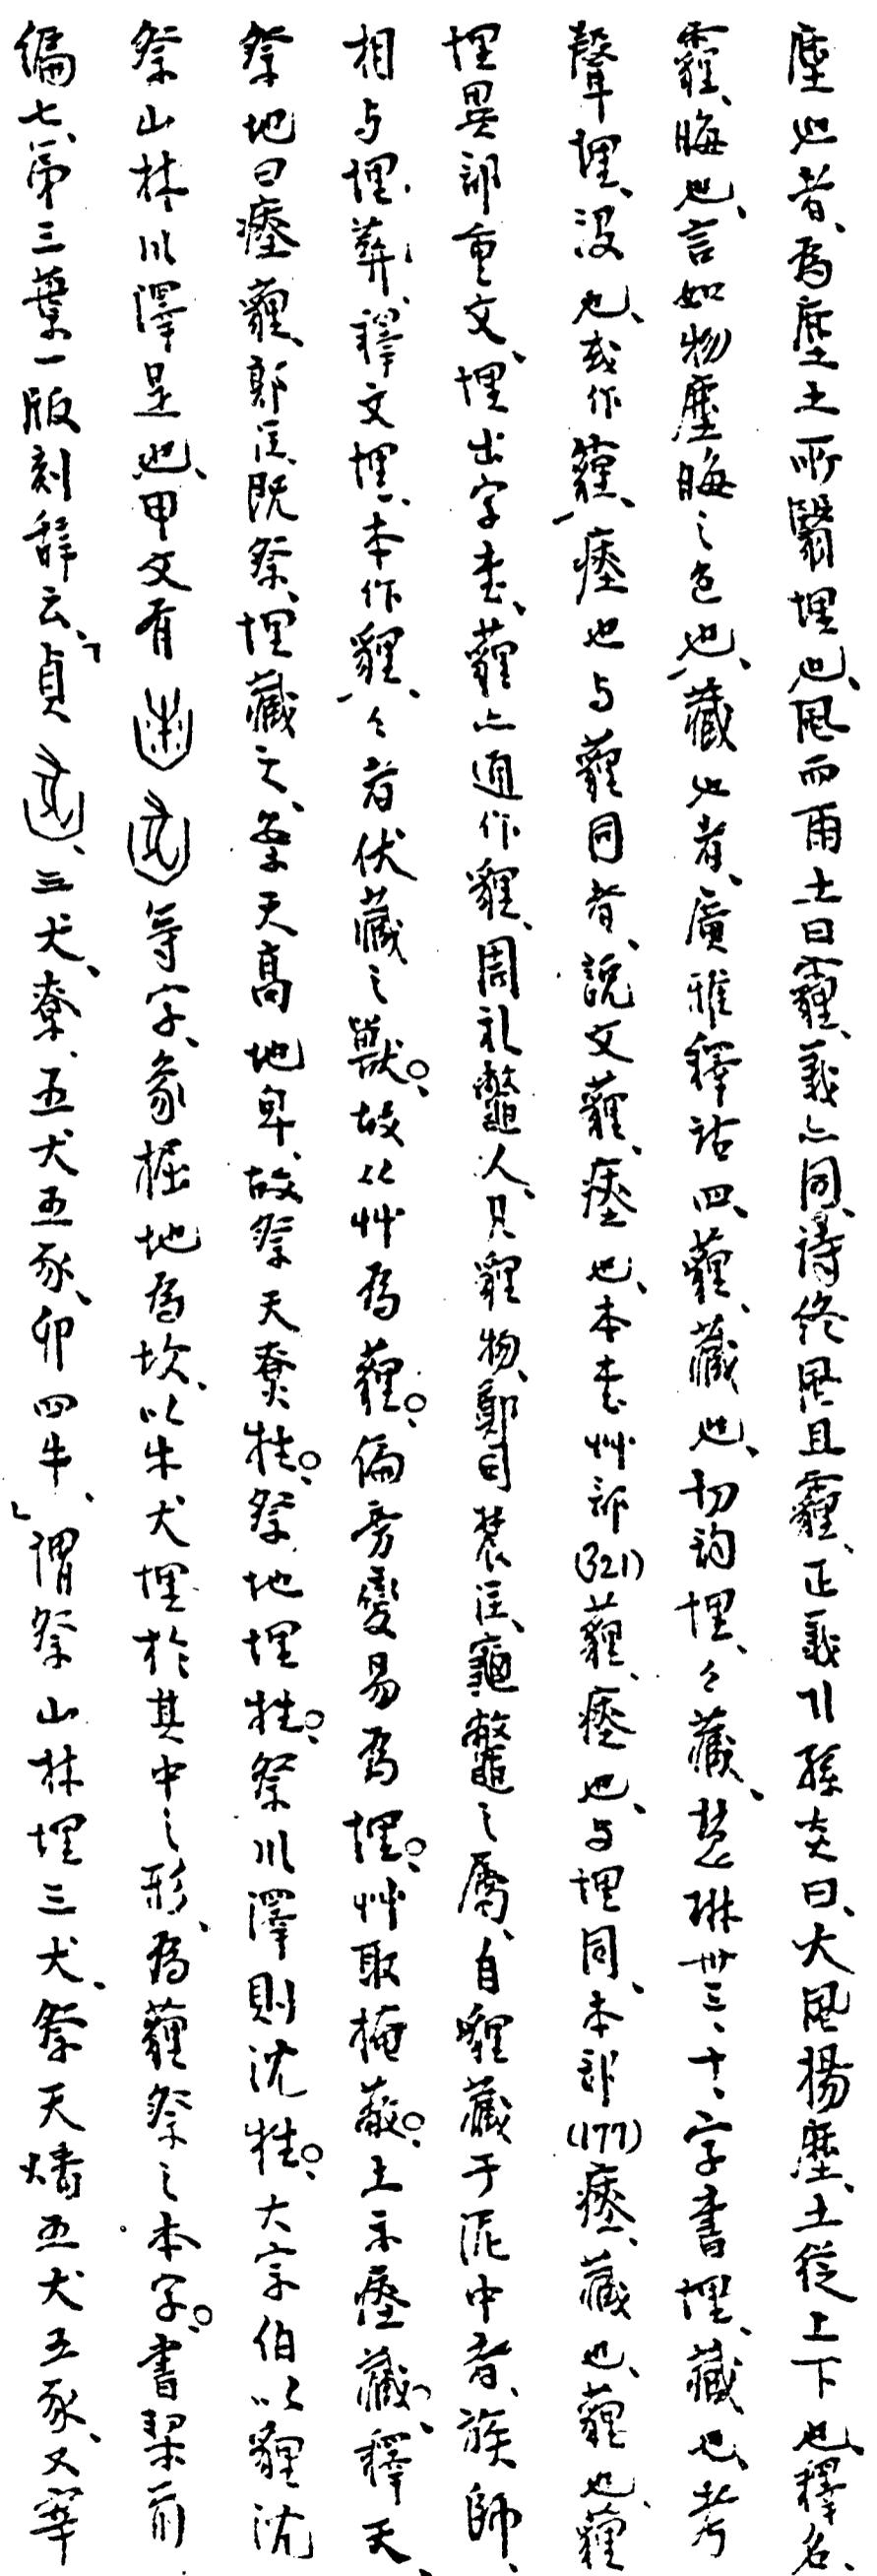 塵也者、為塵土所翳埋也、風而雨土曰霾、義亦同、詩終風且霾、正義引孫炎曰、大風揚塵、土從上下也、釋名、
霾、晦也、言如物塵晦之色也、藏也者、廣雅釋詁四、薶、藏也、切韵埋、々藏、慧琳卅三、十、字書埋、藏也、考
聲埋、沒也、或作薶、瘞也与薶同者、說文薶、瘞也、本書艸部(321)薶、瘞也、与埋同、本部(177)瘞、藏也、薶也、薶
埋異部重文、埋出字書、薶亦通作貍、周礼鼈人、凡貍物、鄭司農注、龜鼈之屬、自貍藏于泥中者、族師、
相与埋葬、釋文埋、本作貍、々者伏藏之獸。故从艸為薶。偏旁變易為埋。艸取掩蔽。土示瘞藏、釋天、
祭地曰瘞薶、郭注、既祭、埋藏之、蓋天高地卑、故祭天燔牲。祭地埋牲。祭川澤則沈牲。大宗伯以貍沈
祭山林川澤是也、甲文有等字、象掘地為坎、以牛犬埋於其中之形、為薶祭之本字。書栔前
編七、第三葉一版刻辞云、「貞、三犬、尞、五犬五豕、卯四牛、」謂祭山林埋三犬、祭天燔五犬五豕、又宰